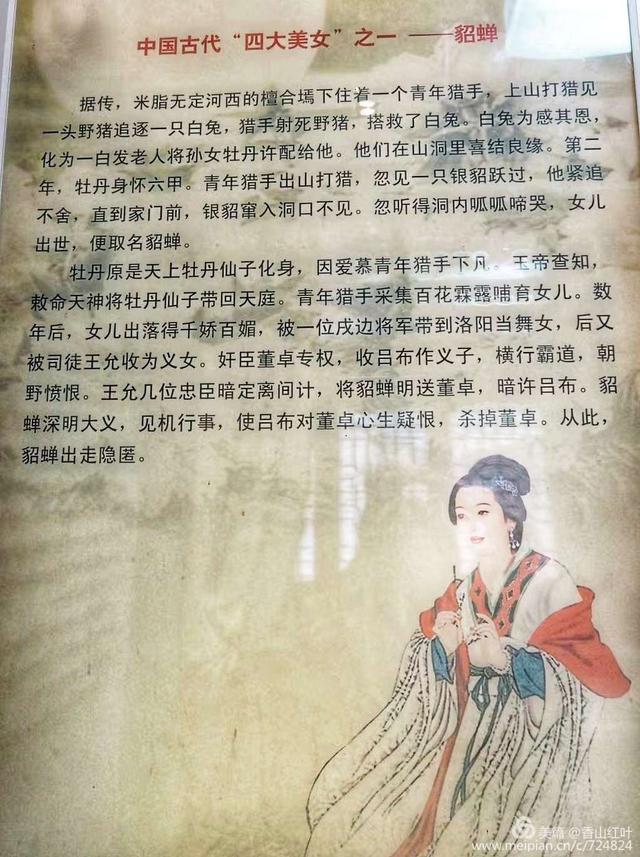 中国古代“四大美女”之一 ——貂蝉
据传，米脂无定河西的檀合墕下住着一个青年猎手，上山打猎见
一头野猪追逐一只白兔，猎手射死野猪，搭救了白兔。白兔为感其恩，
化为一白发老人将孙女牡丹许配给他。他们在山洞里喜结良缘。第二
年，牡丹身怀六甲。青年猎手出山打猎，忽见一只银貂跃过，他紧追
不舍，直到家门前，银貂窜入洞口不见。忽听得洞内呱呱啼哭，女儿
出世，便取名貂蝉。
牡丹原是天上牡丹仙子化身，因爱慕青年猎手下凡。玉帝查知，
敕命天神将牡丹仙子带回天庭。青年猎手采集百花霖露哺育女儿。数
年后，女儿出落得千娇百媚，被一位戍边将军带到洛阳当舞女，后又
被司徒王允收为义女。奸臣董卓专权，收吕布作义子，横行霸道，朝
野愤恨。王允几位忠臣暗定离间计，将貂蝉明送董卓，暗许吕布。貂
蝉深明大义，见机行事，使吕布对董卓心生疑恨，杀掉董卓。从此，
貂蝉出走隐匿。
美篇 @香山红叶
www.meipian.cn/c/724824